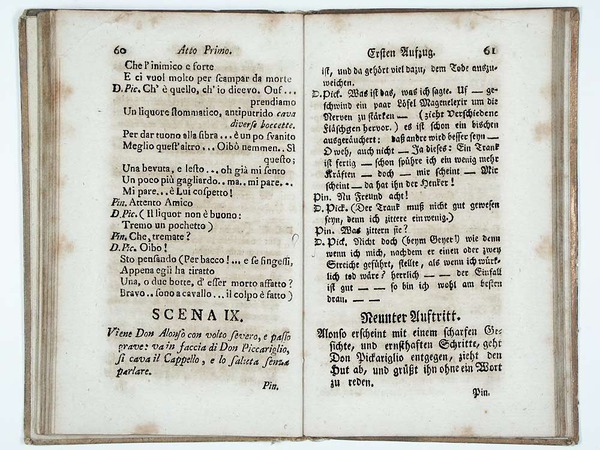 60 Atto Primo.
Che l'inimico e forte
E ci vuol molto per scampar da morte
D. Pic. Ch' è quello, ch' io dicevo. Ouf...
prendiamo
Un liquore stommatico, antiputrido cava
diverse boccette.
Per dar tuono alla fibra... è un po svanito
Meglio quest' altro... Oibò nemmen.. Sì
questo;
Una bevuta, e lesto... oh già mi sento
Un poco più gagliardo.. ma.. mi pare...
Mi pare... è Lui cospetto!
Pin. Attento Amico
D. Pic. (Il liquor non è buono:
Tremo un pochetto)
Pin. Che, tremate?
D. Pic. Oibo!
Sto pensando (Per bacco!... e se fingessi,
Appena egli ha tiratto
Una, o due botte, d' esser morto affatto?
Bravo.. sono a cavallo... il colpo è fatto)
SCENA IX.
Viene Don Alonso con volto severo, e passo
grave: va in faccia di Don Piccariglio,
si cava il Cappello, e lo saluta senza
parlare.
Pin.
Ersten Aufzug. 61
ist, und da gehört viel dazu, dem Tode auszu-
weichen.
D. Pick. Was ist das, was ich sage. Uf — ge-
schwind ein paar Löfel Magenelexir um die
Nerven zu stärken — (zieht Verschiedene
Fläschgten hervor.) es ist schon ein bischen
ausgeräuchert: das andre wird besser seyn —
O weh, auch nicht — Ja dieses: Ein Trank
ist fertig — schon spühre ich ein wenig mehr
Kräften — doch — mir scheint — Mir
scheint — da hat ihn der Henker!
Pin. Nu Freund acht!
D. Pick. (Der Trank muß nicht gut gewesen
seyn, denn ich zittere ein wenig.)
Pin. Was zittern sie?
D. Pick. Nicht doch (beym Geyer!) wie denn
wenn ich mich, nachdem er einen oder zwey
Streiche geführt, stellte, als wenn ich würk-
lich tod wäre? herrlich — — der Einfall
ist gut — — so bin ich wohl am besten
dran. — —
Neunter Auftritt.
Alonso erscheint mit einem scharfen Ge-
sichte, und ernsthaften Schritte, geht
Don Pickariglio entgegen, zieht den
Hut ab, und grüßt ihn ohne ein Wort
zu reden.
Pin.